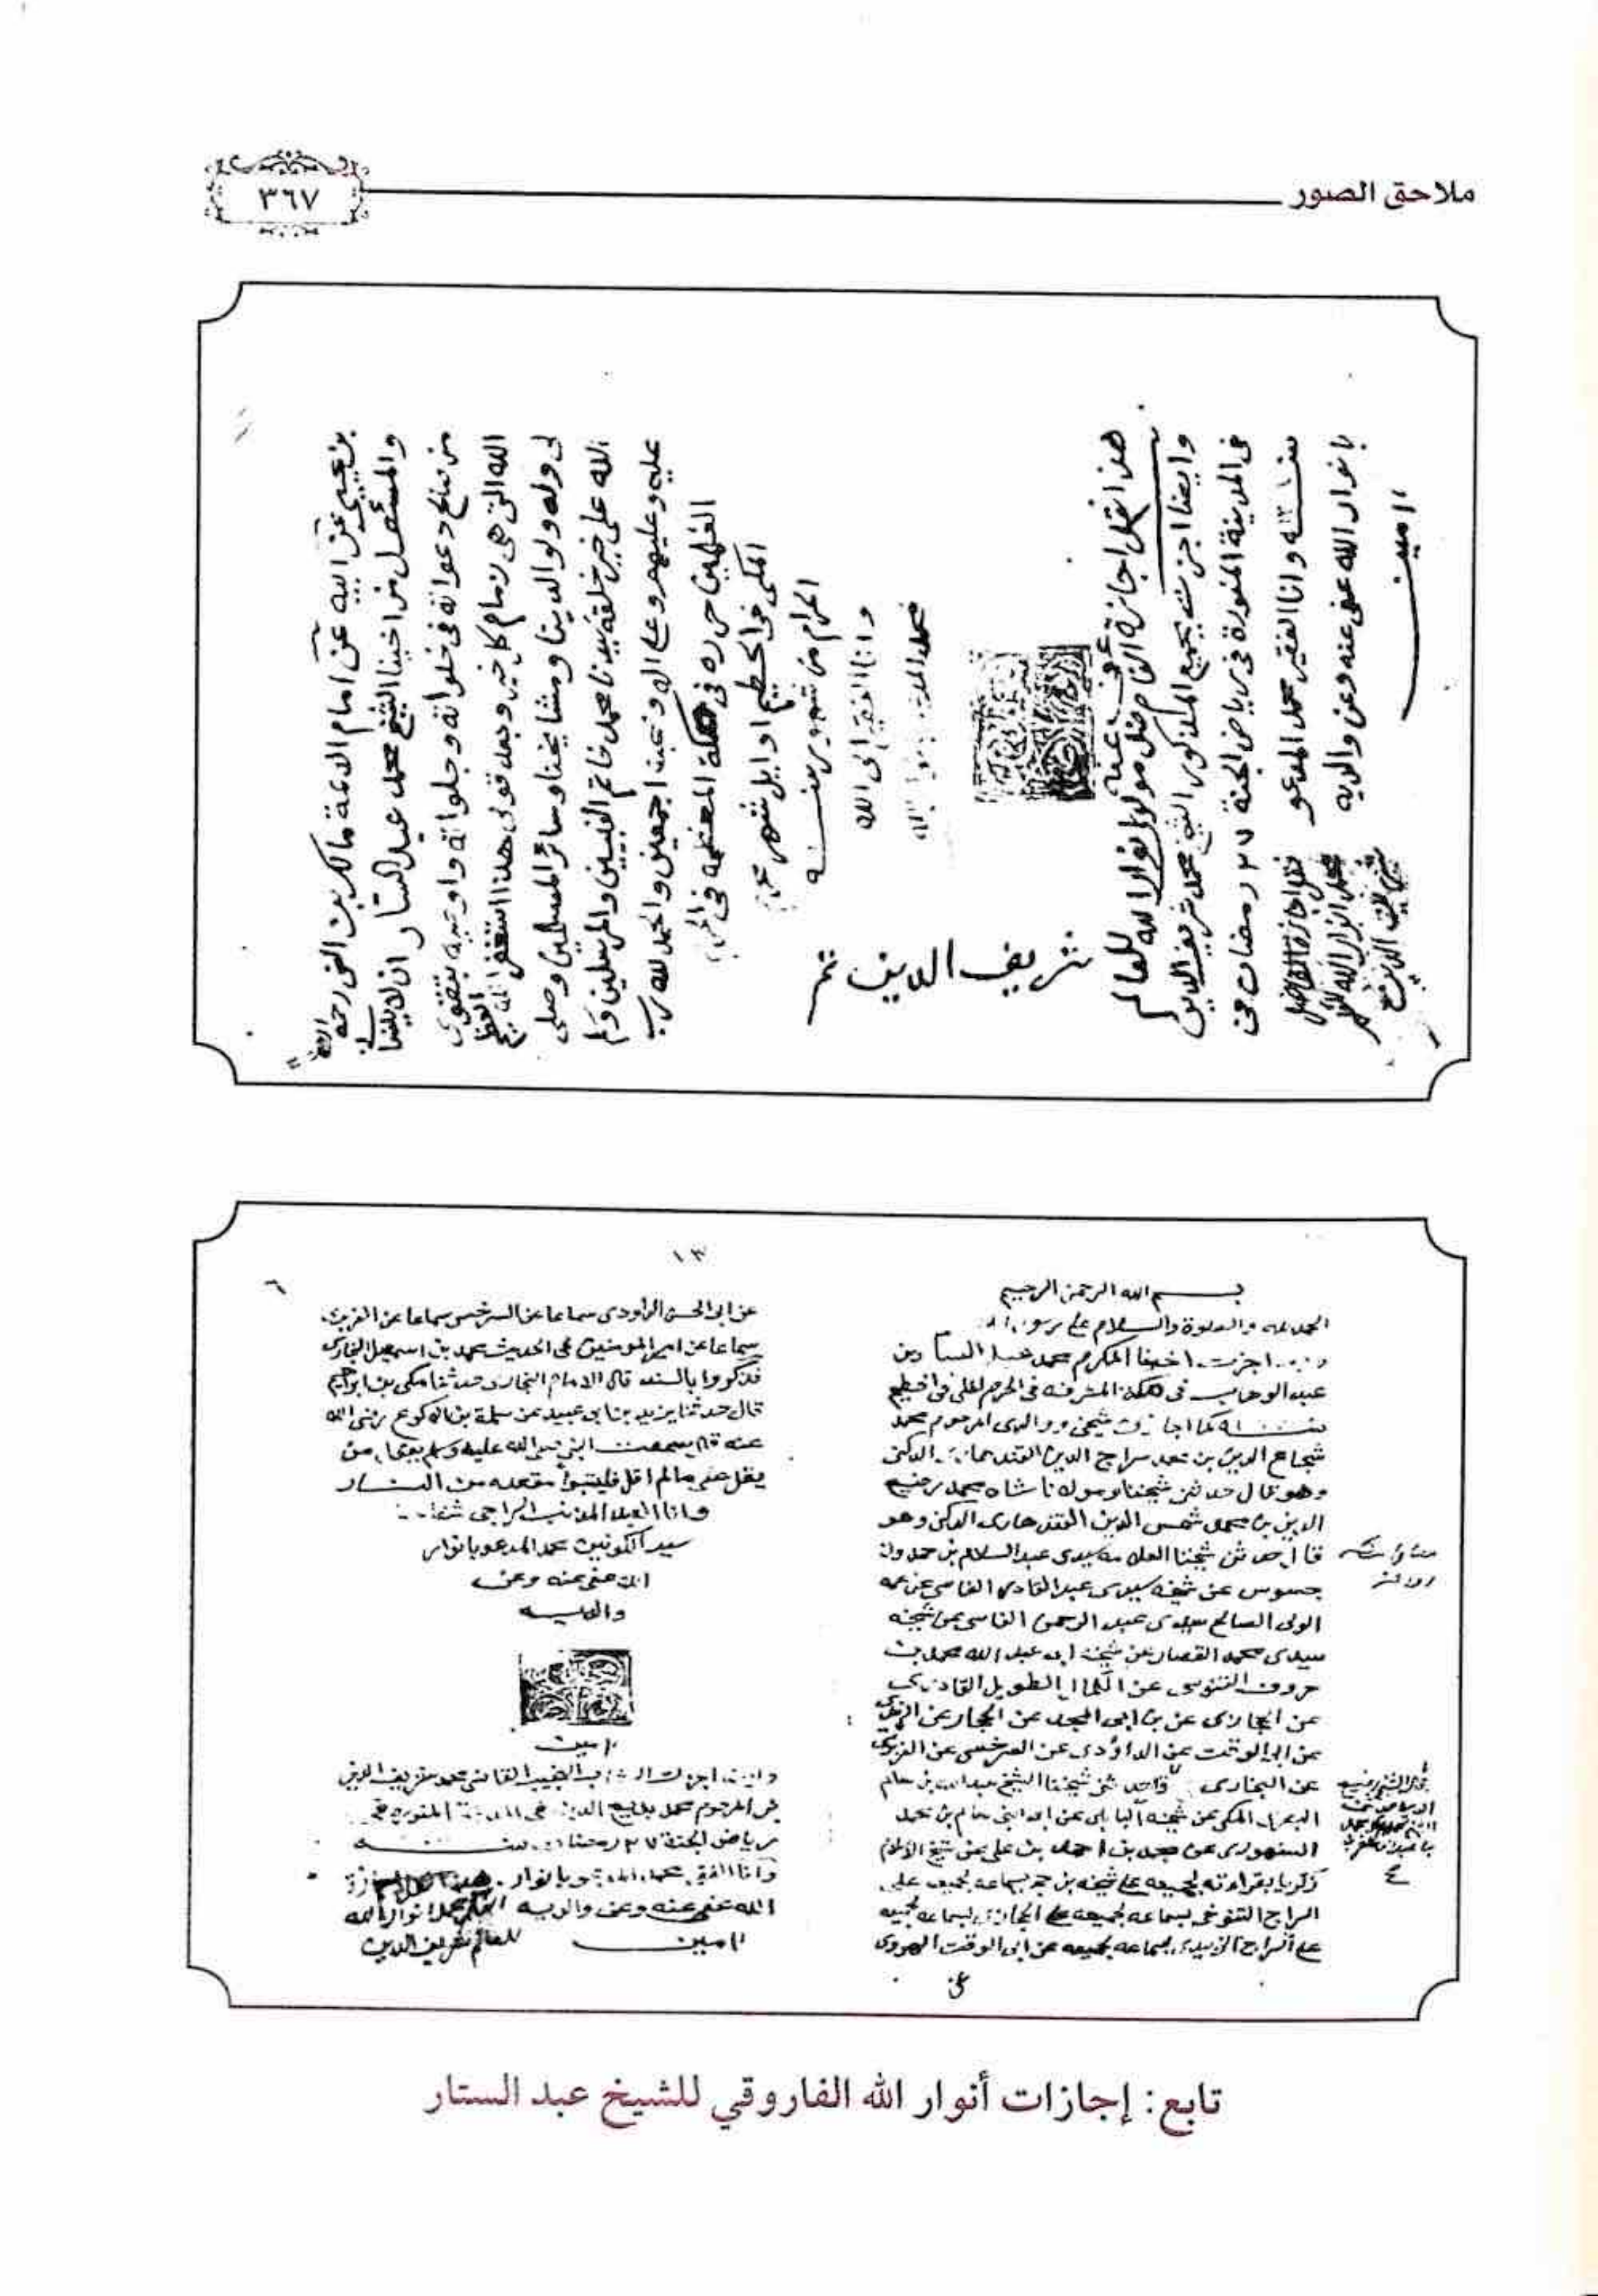 ملاحق الصور
٣٦٧
بن يحيى عن ابيه عن امام الائمة مالك بن انس رحمه الله
والمسئول من اخينا الشيخ محمد عبد الستار ان لا ينسانا
من صالح دعواته في خلواته وجلواته واوصيه بتقوى
الله التي هي زمام كل خير
لي وله ولوالدينا ومشايخنا وسائر المسلمين وصلى
الله على خير خلقه سيدنا محمد خاتم النبيين والمرسلين
عليه وعليهم وعلى اله وصحبه اجمعين والحمد لله رب
العلمين حرره في مكة المعظمة في الحرم
المكي في الحطيم اوايل شهر محرم
الحرام من شهور سنة
وانا الفقير الى الله
محمد المدعو
عفي عنه
هذا نقل اجازة الفاضل مولانا انوار الله للعالم
شريف الدين تم
وايضا اجزت بجميع المذكور الشيخ محمد شريف الدين
في المدينة المنورة في رياض الجنة ٢٧ رمضان في
سنه وانا الفقير محمد المدعو
بانوار الله عفى عنه وعن والديه
امين
نقل اجازة الفاضل
محمد انوار الله للعالم
شريف الدين
بسم الله الرحمن الرحيم
الحمد لله والصلوة والسلام على رسول الله
اجزت اخينا المكرم محمد عبد الستار بن
عبد الوهاب في مكة المشرفة في الحرم المكي في الحطيم
سنه كما اجازني شيخي ووالدي المرحوم محمد
شجاع الدين بن محمد سراج الدين القندهاري الدكني
وهو قال حدثني شيخنا ومولانا شاه محمد رفيع
الدين بن محمد شمس الدين القندهاري الدكني وهو
قال حدثني شيخنا العلامه سيدي عبد السلام بن حمدون
جسوس عن شيخه سيدي عبد القادر الفاسي عن عمه
الولي الصالح سيدي عبد الرحمن الفاسي عن شيخه
سيدي محمد القصار عن شيخه ابي عبد الله محمد بن
خروف التونسي عن الكمال الطويل القادري
عن الحجازي عن بن ابي المجد عن الحجار عن الزبيدي
عن ابي الوقت عن الداودي عن السرخسي عن الفربري
عن البخاري وحدثني شيخنا الشيخ عبد الله بن سالم
البصري المكي عن شيخه البابلي عن ابي النجا سالم بن محمد
السنهوري عن محمد بن احمد بن علي عن شيخ الاسلام
زكريا بقراءته لجميعه على شيخه بن حجر بسماعه لجميعه على
السراج التنوخي بسماعه لجميعه على الحجار بسماعه لجميعه
على السراج الزبيدي بسماعه لجميعه عن ابي الوقت الهروي
عن
١٣
٦
عن ابي الحسن الداودي سماعا عن السرخسي سماعا عن الفربري
سماعا عن امير المومنين في الحديث محمد بن اسمعيل البخاري
فذكروا بالسند قال الامام البخاري حدثنا مكي بن ابراهيم
قال حدثنا يزيد بن ابي عبيد عن سلمة بن الاكوع رضي الله
عنه قال سمعت النبي صلى الله عليه وسلم يقول من
يقل علي مالم اقل فليتبوأ مقعده من النار
وانا العبد المذنب الراجي شفاعة
سيد الكونين محمد المدعو بانوار
الله عفى عنه وعن
والديه
امين
وايضا اجزت القاضي محمد شريف الدين
بن المرحوم محمد بديع الدين في المدينة المنورة في
رياض الجنة ٢٧ رمضان سنه
وانا الفقير محمد المدعو بانوار
الله عفى عنه وعن والديه
امين
محمد انوار الله
للعالم شريف الدين
تابع: إجازات أنوار الله الفاروقي للشيخ عبد الستار